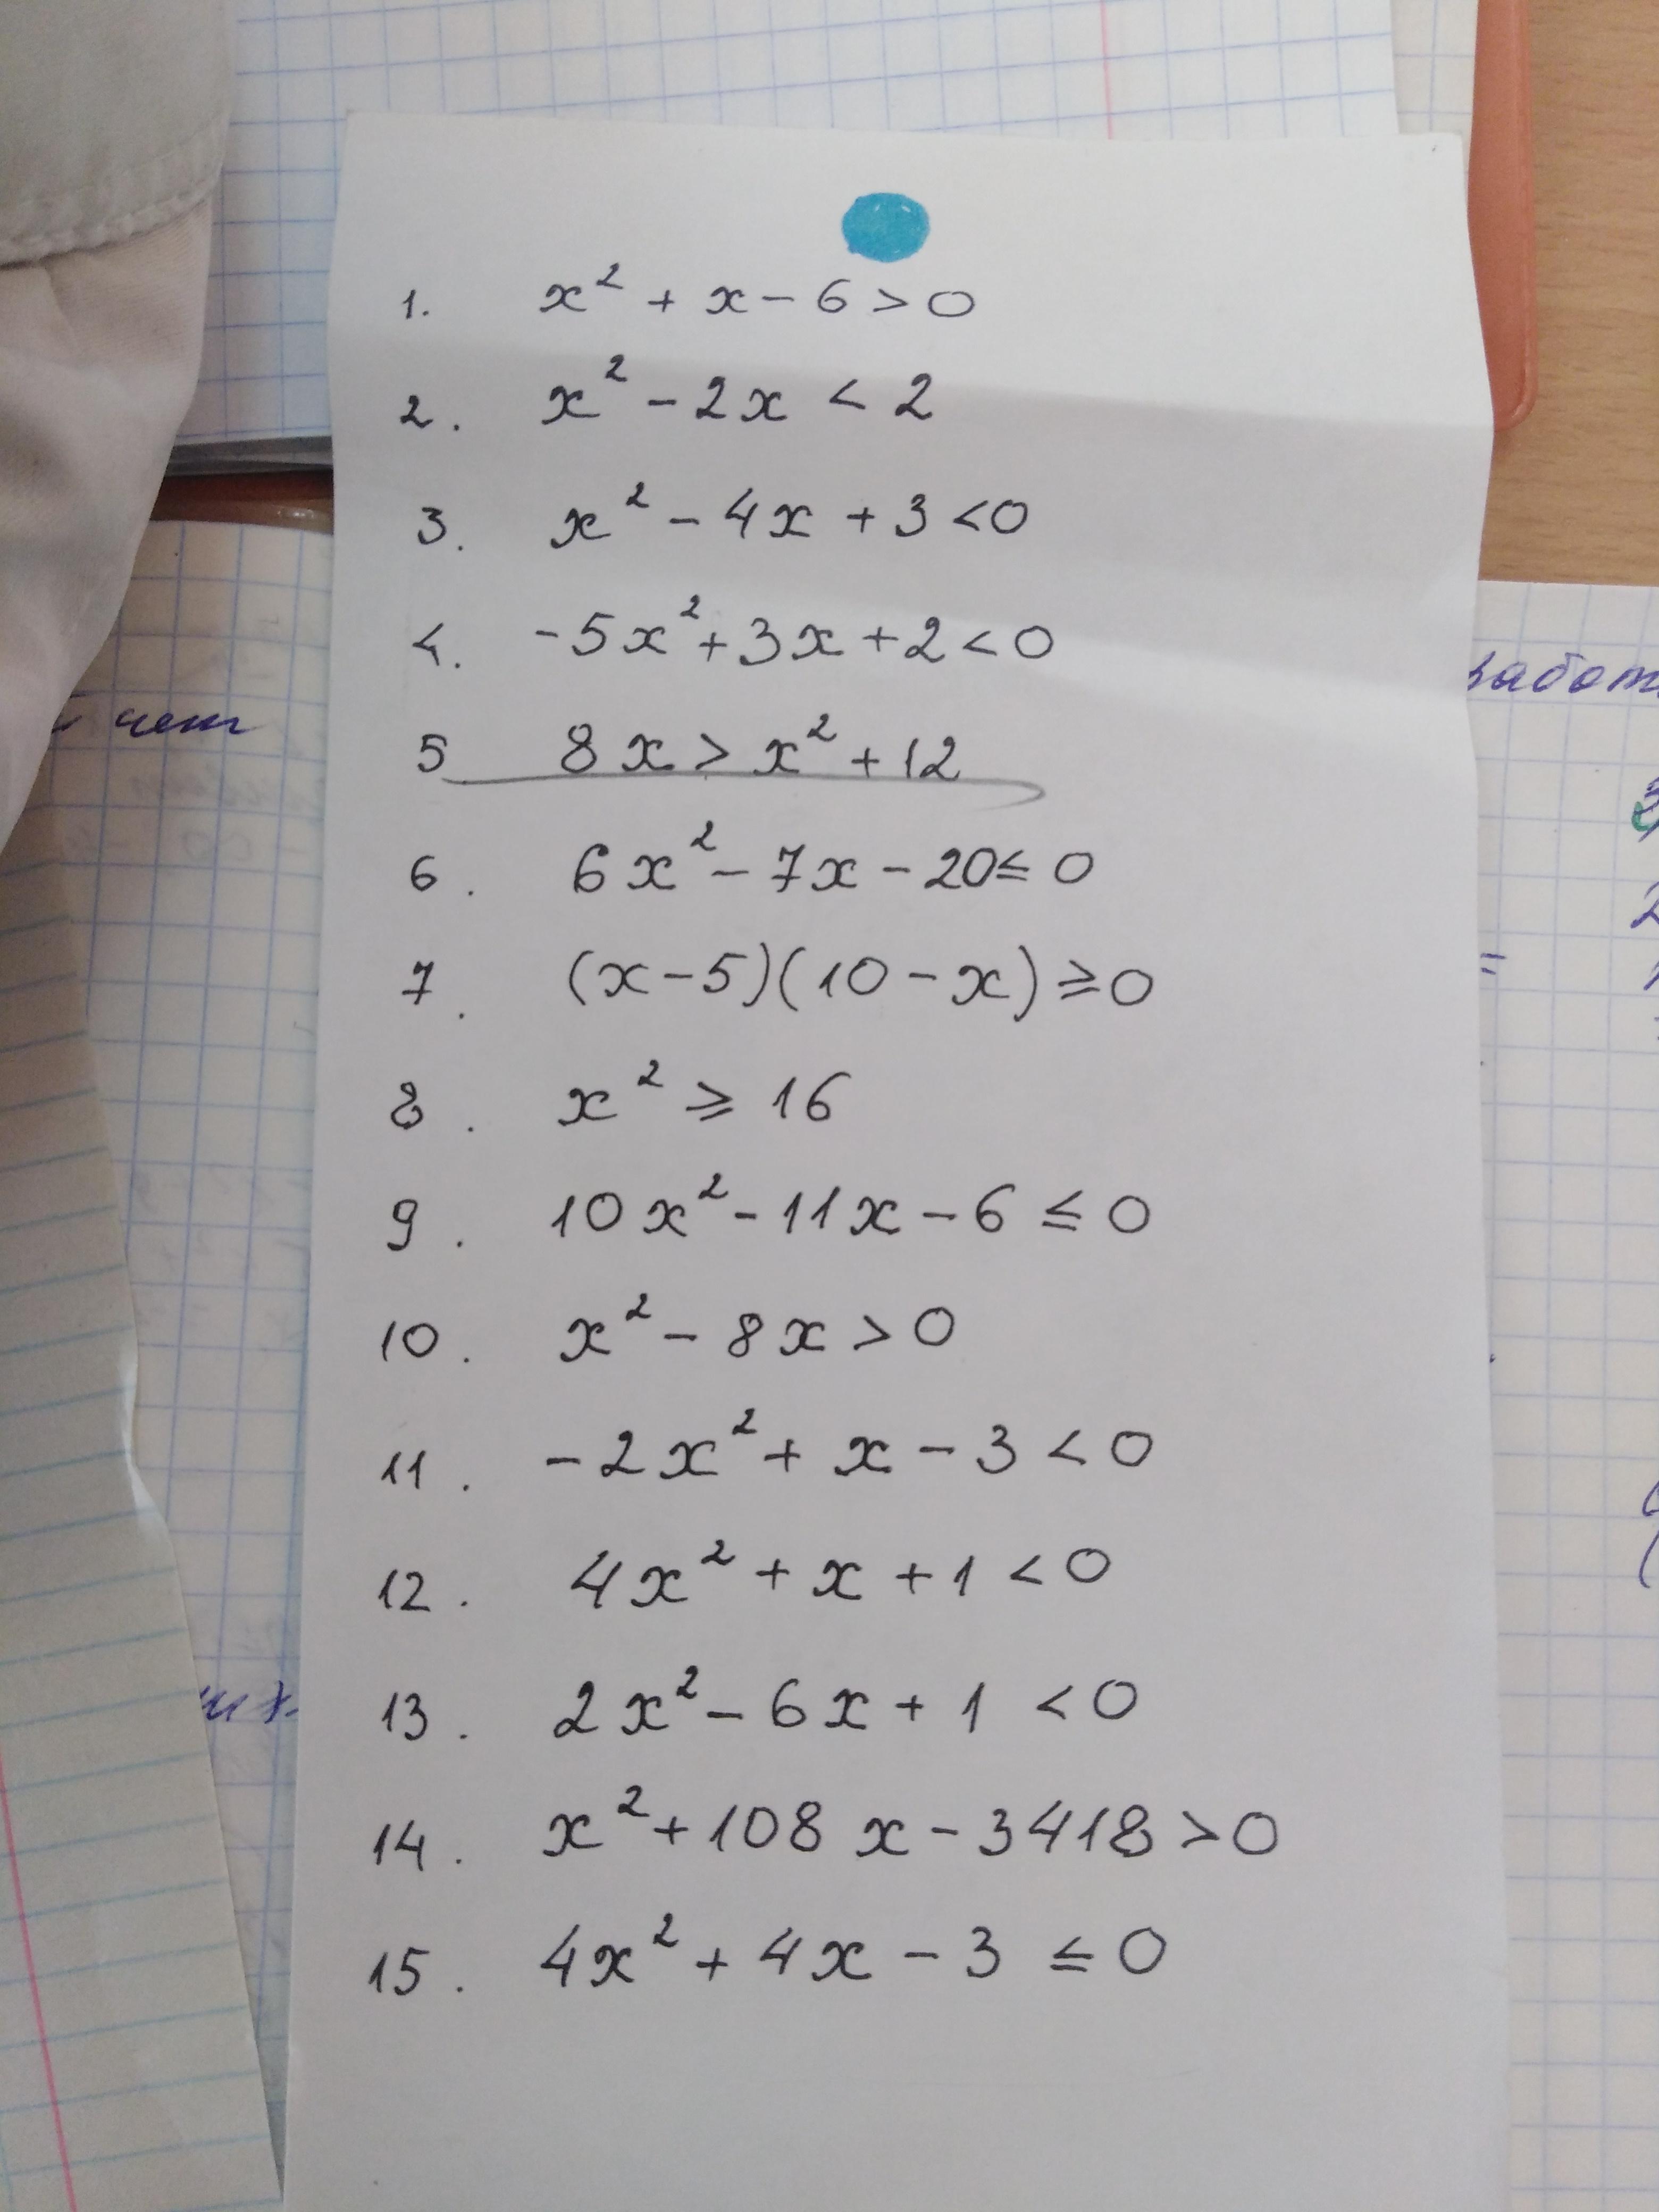 1. x² + x - 6 > 0
2. x² - 2x < 2
3. x² - 4x + 3 < 0
4. -5x² + 3x + 2 < 0
5 8x > x² + 12
6. 6x² - 7x - 20 ≤ 0
7. (x - 5)(10 - x) ≥ 0
8. x² ≥ 16
9. 10x² - 11x - 6 ≤ 0
10. x² - 8x > 0
11. -2x² + x - 3 < 0
12. 4x² + x + 1 < 0
13. 2x² - 6x + 1 < 0
14. x² + 108x - 3418 > 0
15. 4x² + 4x - 3 ≤ 0